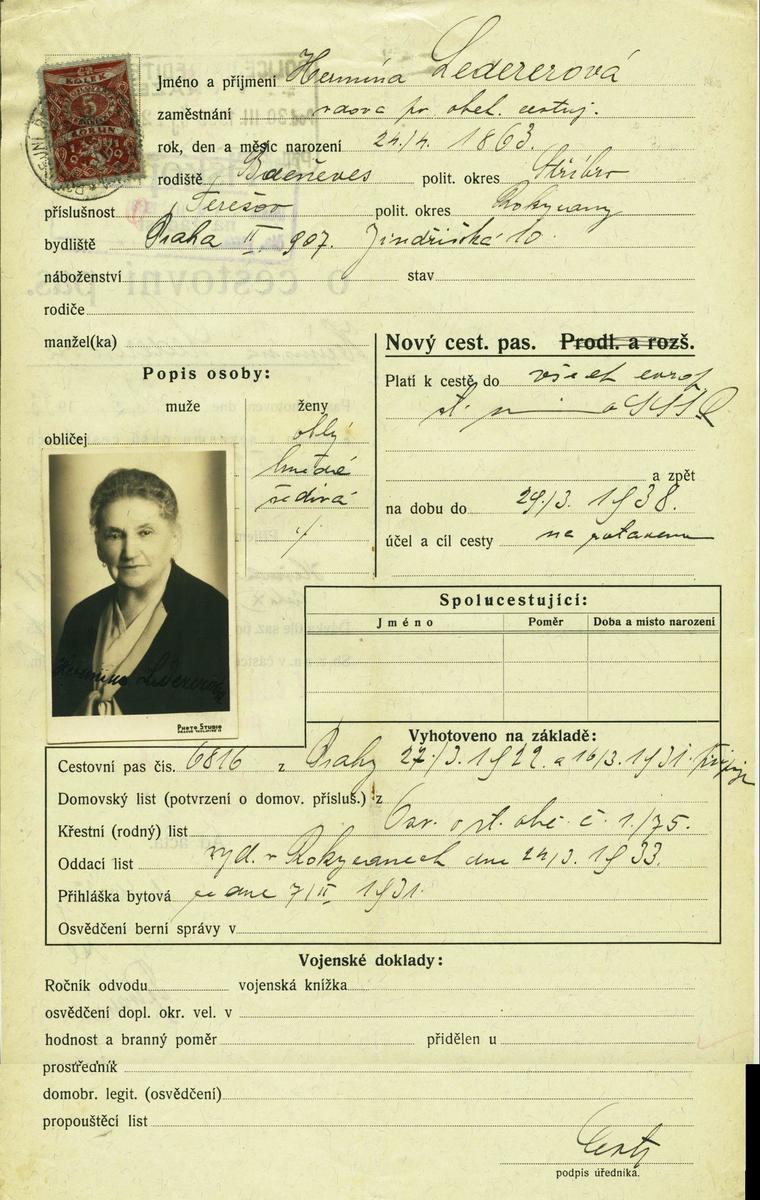 KOLEK
5
KORUN
1919
Jméno a příjmení Hermína Ledererová
zaměstnání vdova po obch. cestuj.
rok, den a měsíc narození 24./4. 1863.
rodiště polit. okres Stříbro
příslušnost Terešov polit. okres Rokycany
bydliště Praha II. 907. Jindřišská 10.
náboženství stav
rodiče
manžel(ka)
Nový cest. pas. Prodl. a rozš.
Popis osoby:
muže ženy
obličej oblý
hnědé
šedivá
Platí k cestě do všech evrop.
st. SSSR
a zpět
na dobu do 29./3. 1938.
účel a cíl cesty na zotavenou
Spolucestující:
Jméno Poměr Doba a místo narození
Hermína Ledererová
PHOTO STUDIO
Vyhotoveno na základě:
Cestovní pas čís. 6816 z Prahy 27./3. 1922. a 16/3. 1931.
Domovský list (potvrzení o domov. přísluš.) z
Křestní (rodný) list Osv. o st. obč. č. 1./75.
Oddací list vyd. v Rokycanech dne 24/3. 1933.
Přihláška bytová ze dne 7/II. 1931.
Osvědčení berní správy v
Vojenské doklady:
Ročník odvodu vojenská knížka
osvědčení dopl. okr. vel. v
hodnost a branný poměr přidělen u
prostředník
domobr. legit. (osvědčení)
propouštěcí list
podpis úředníka.